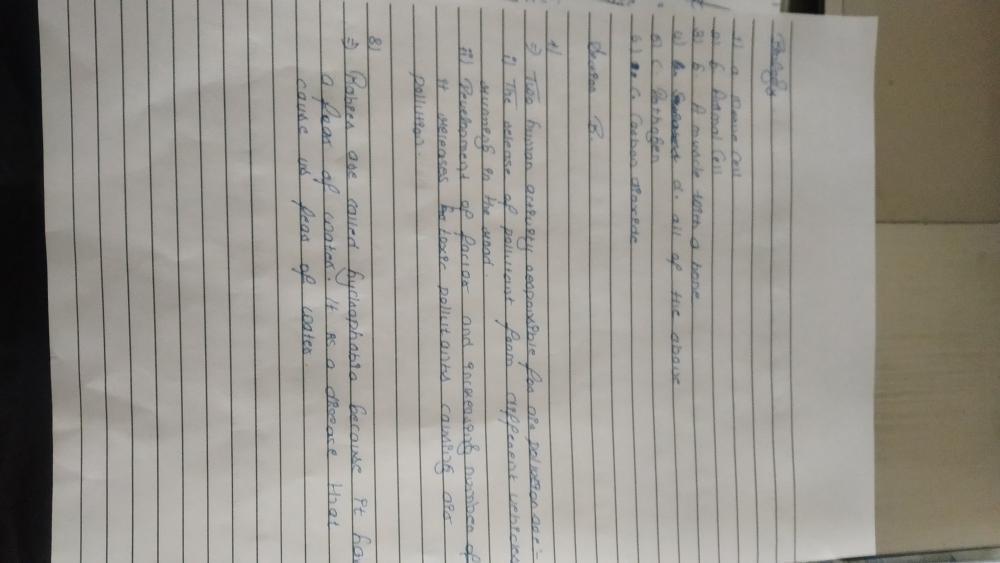 Biology
1) a Nerve cell
2) b Animal Cell
3) b A muscle with a bone
4) d. all of the above
5) c Pathogen
6) c Carbon dioxide
Section B.
7)
⇒ Two human activity responsible for air pollution are:-
i) The release of pollutant from different vehicles
running in the road.
ii) Development of and increasing number of
it releases toxic pollutants causing air
pollution.
8)
⇒ Rabies are called hydrophobia because it has
a fear of water. It is a disease that
cause us fear of water.